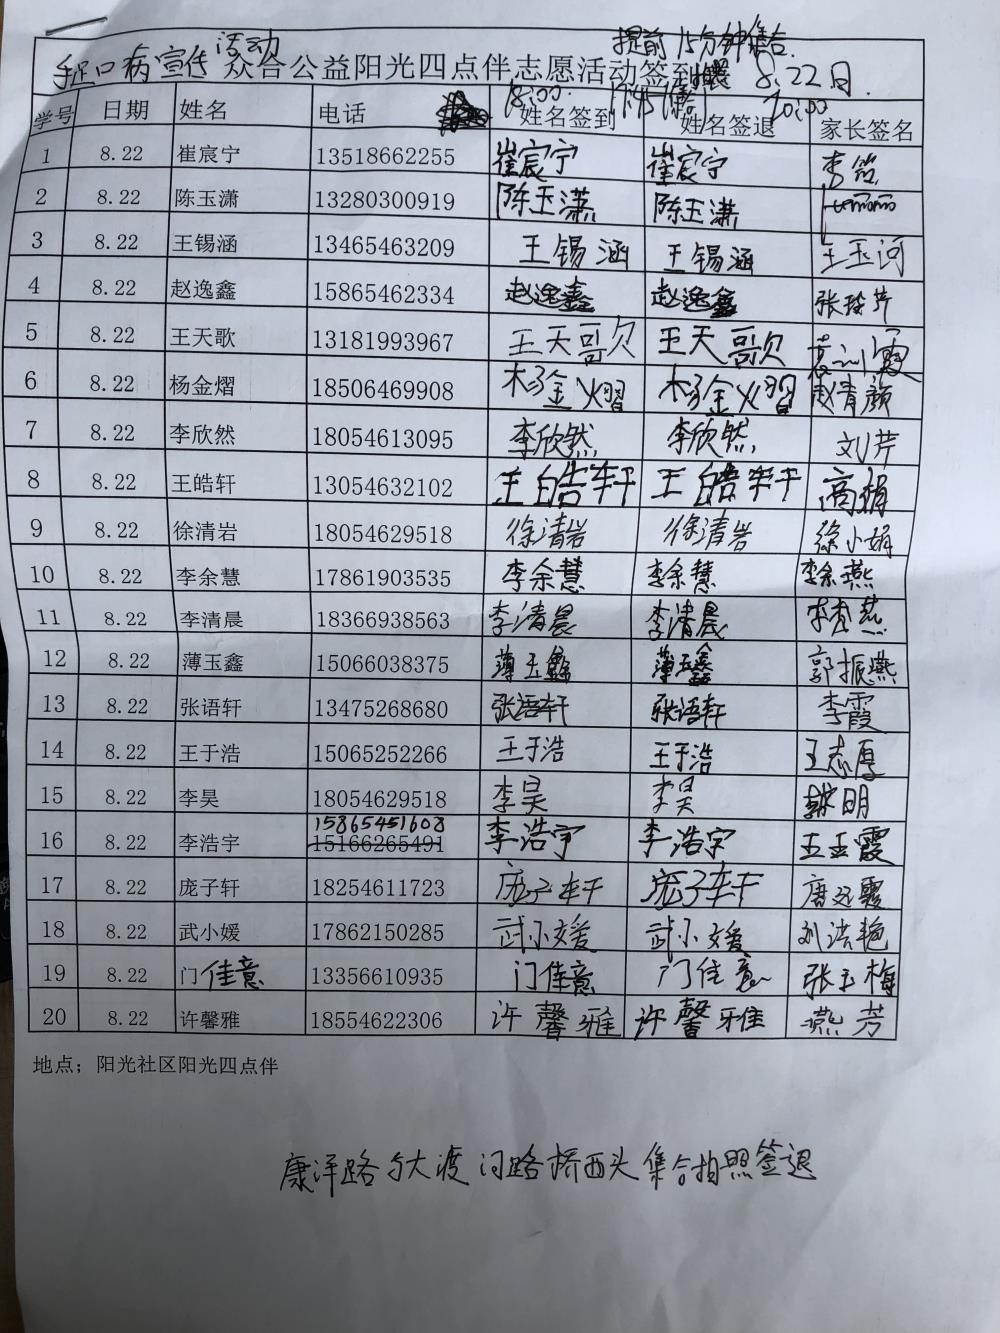 提前15分钟集合
手足口病宣传活动
众合公益阳光四点伴志愿活动签到 8.22日.
18:00 17:45集合 20:00
学号 日期 姓名 电话 姓名签到 姓名签退 家长签名
1 8.22 崔宸宁 13518662255 崔宸宁 崔宸宁 李
2 8.22 陈玉潇 13280300919 陈玉潇 陈玉潇
3 8.22 王锡涵 13465463209 王锡涵 王锡涵 王玉河
4 8.22 赵逸鑫 15865462334 赵逸鑫 赵逸鑫 张玲芹
5 8.22 王天歌 13181993967 王天歌 王天歌 霞
6 8.22 杨金熠 18506469908 杨金熠 杨金熠 赵青颜
7 8.22 李欣然 18054613095 李欣然 李欣然 刘芹
8 8.22 王皓轩 13054632102 王皓轩 王皓轩 高娟
9 8.22 徐清岩 18054629518 徐清岩 徐清岩 徐小娟
10 8.22 李余慧 17861903535 李余慧 李余慧 李余燕
11 8.22 李清晨 18366938563 李清晨 李清晨 燕
12 8.22 薄玉鑫 15066038375 薄玉鑫 薄玉鑫 郭振燕
13 8.22 张语轩 13475268680 张语轩 张语轩 李霞
14 8.22 王于浩 15065252266 王于浩 王于浩 王志厚
15 8.22 李昊 18054629518 李昊 李昊 明
15865451608
16 8.22 李浩宇 15166265491 李浩宇 李浩宇 王玉霞
17 8.22 庞子轩 18254611723 庞子轩 庞子轩 唐远霞
18 8.22 武小媛 17862150285 武小媛 武小媛 刘洪艳
19 8.22 门佳意 13356610935 门佳意 门佳意 张玉梅
20 8.22 许馨雅 18554622306 许馨雅 许馨雅 燕芳
地点；阳光社区阳光四点伴
康洋路与大渡河路桥西头集合拍照签退